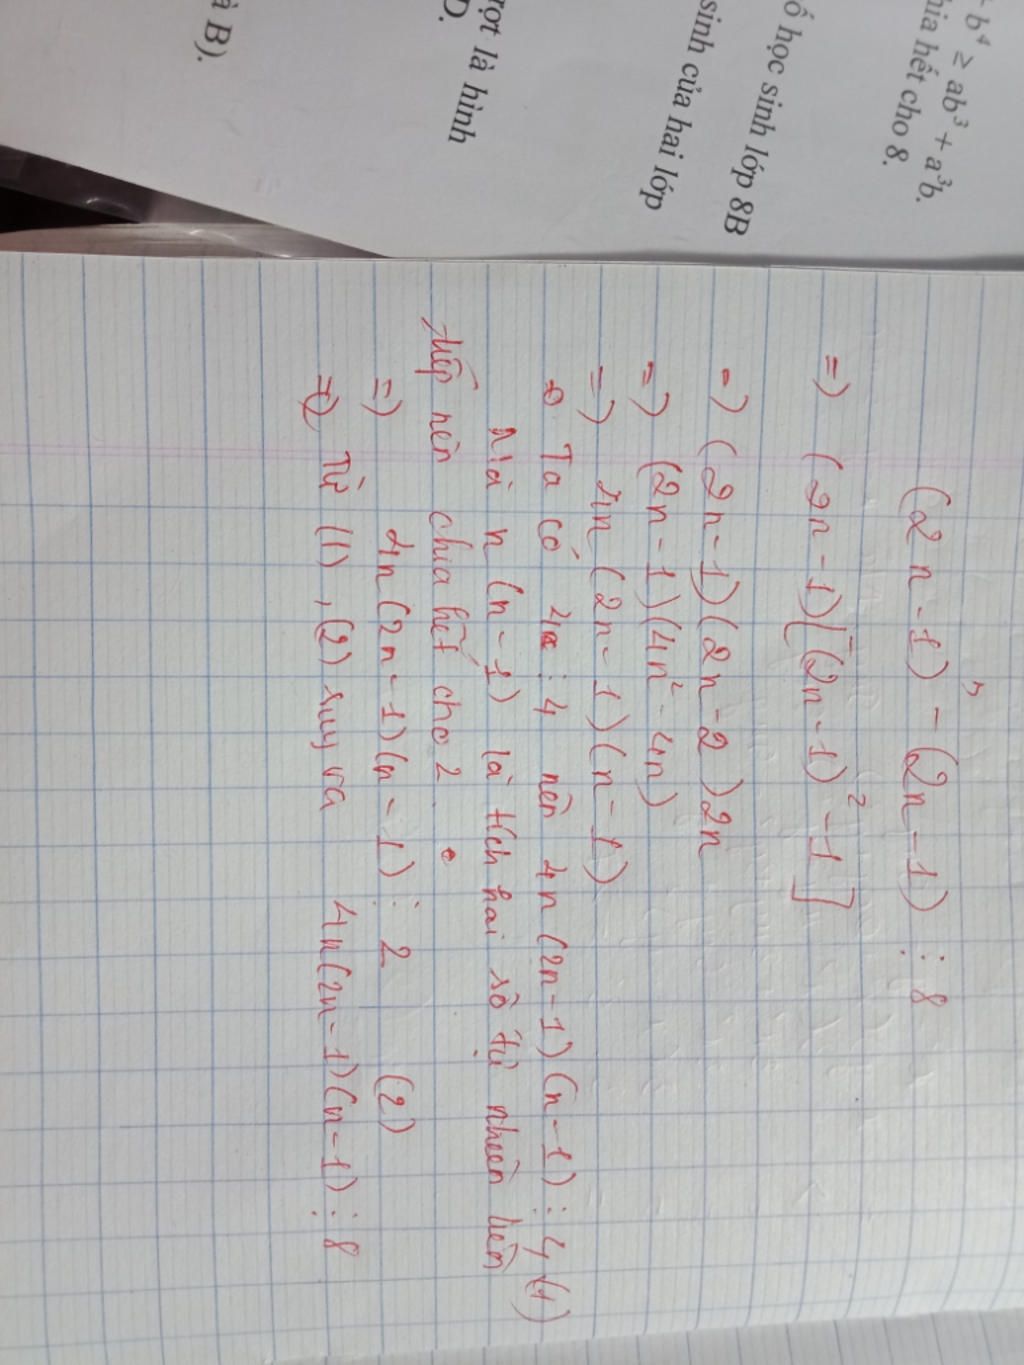 b⁴ ≥ ab³ + a³b.
hia hết cho 8.
ố học sinh lớp 8B
sinh của hai lớp
ợt là hình
D.
à B).
(2n-1)³ - (2n-1) ⋮ 8
=) (2n-1)[(2n-1)² -1]
=) (2n-1)(2n-2)2n
=) (2n-1)(4n²-4n)
=) 4n(2n-1)(n-1)
Ta có 4n ⋮ 4 nên 4n(2n-1)(n-1) ⋮ 4 (1)
Mà n(n-1) là tích hai số tự nhiên liên
tiếp nên chia hết cho 2.
=) 4n(2n-1)(n-1) ⋮ 2 (2)
Từ (1), (2) suy ra 4n(2n-1)(n-1) ⋮ 8